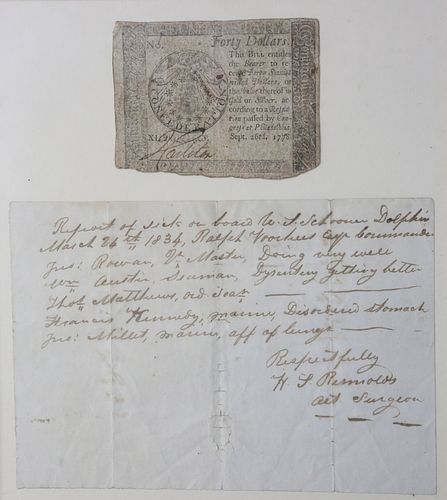 No.
Forty Dollars.
THIS BILL entitles
the Bearer to re-
ceive Forty Spanish
milled Dollars, or
the Value thereof in
Gold or Silver, ac-
cording to a Resolu-
tion passed by Con-
gress at Philadelphia
Sept. 26th, 1778.
CONFEDERATION
Report of sick on board U. S. Schooner Dolphin
March 26th 1834, Ralph Voorhees Esqr Commander
Jno: Rowan, Qr Master, Doing very well
Wm Austin, Seaman, Dysentery getting better
Thos Matthews, ord. Sean
Francis Kennedy, marine, Disordered stomach
Jno: Millet, marine, aff of lungs
Respectfully
H. S. Rennolds
act Surgeon